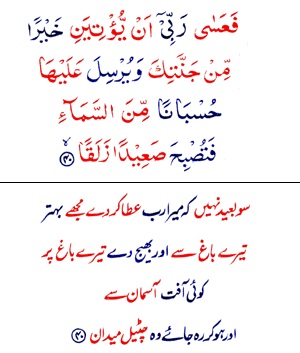 فَعَسٰى رَبِّيْٓ اَنْ يُّؤْتِيَنِ خَيْرًا
مِّنْ جَنَّتِكَ وَيُرْسِلَ عَلَيْهَا
حُسْبَانًا مِّنَ السَّمَآءِ
فَتُصْبِحَ صَعِيْدًا زَلَقًا ۙ﴿۴۰﴾
سو بعید نہیں کہ میرا رب عطا کر دے مجھے بہتر
تیرے باغ سے اور بھیج دے تیرے باغ پر
کوئی آفت آسمان سے
اور ہو کر رہ جائے وہ چٹیل میدان ﴿۴۰﴾